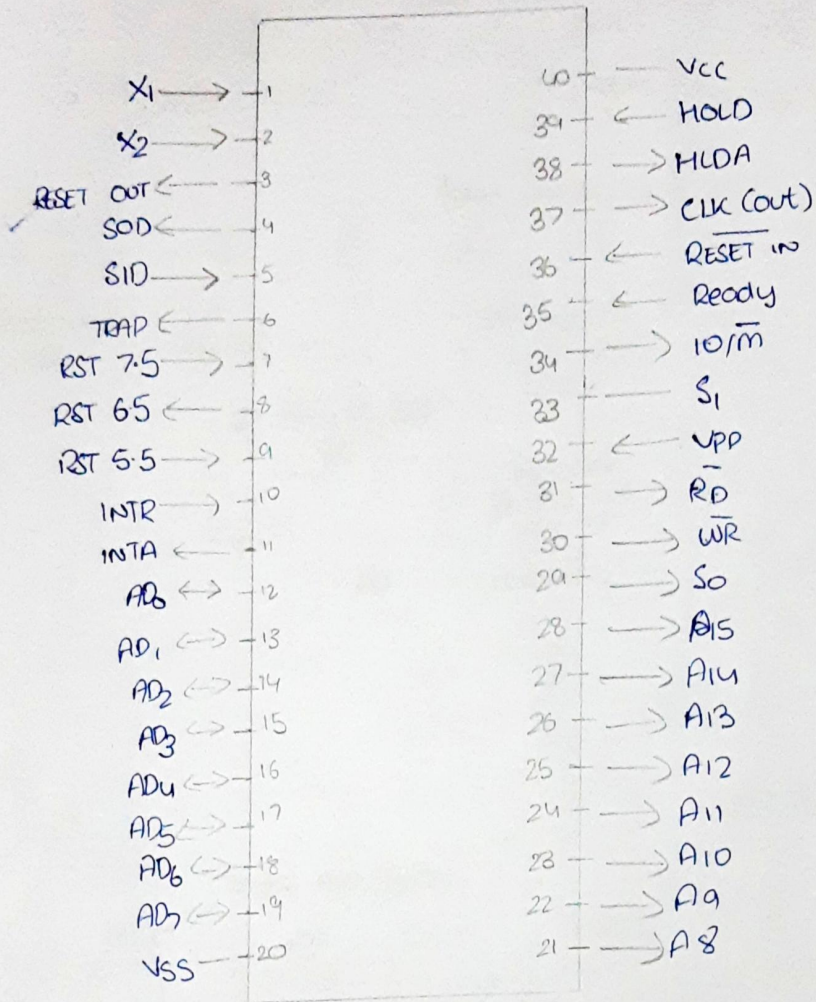 X1 → 1
X2 → 2
RESET OUT ← 3
SOD ← 4
SID → 5
TRAP ← 6
RST 7.5 → 7
RST 65 ← 8
RST 5.5 → 9
INTR → 10
INTA ← 11
AD0 ↔ 12
AD1 ↔ 13
AD2 ↔ 14
AD3 ↔ 15
AD4 ↔ 16
AD5 ↔ 17
AD6 ↔ 18
AD7 ↔ 19
VSS 20
40 VCC
39 ← HOLD
38 → HLDA
37 → CLK (out)
36 ← R̅E̅S̅E̅T̅ IN
35 ← Ready
34 → IO/m̅
33 S1
32 ← VPP
31 → R̅D̅
30 → W̅R̅
29 → S0
28 → A15
27 → A14
26 → A13
25 → A12
24 → A11
23 → A10
22 → A9
21 → A8